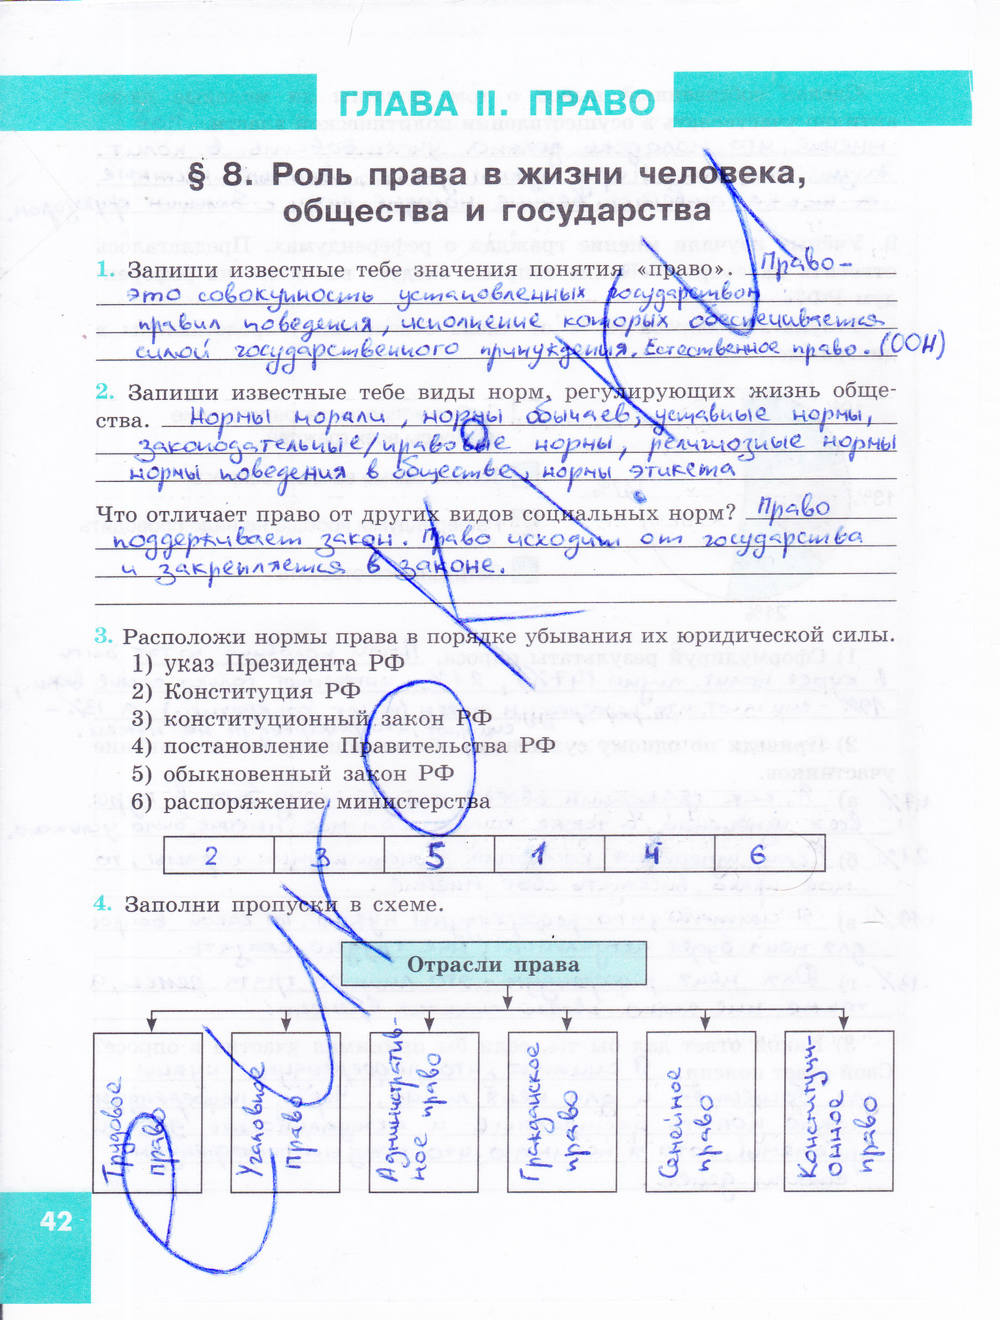 ГЛАВА II. ПРАВО
§ 8. Роль права в жизни человека,
общества и государства
1. Запиши известные тебе значения понятия «право». Право-
это совокупность установленных государством
правил поведения, исполнение которых обеспечивается
силой государственного принуждения. Естественное право. (ООН)
2. Запиши известные тебе виды норм, регулирующих жизнь обще-
ства. Нормы морали, нормы обычаев, уставные нормы,
законодательные/правовые нормы, религиозные нормы
нормы поведения в обществе, нормы этикета
Что отличает право от других видов социальных норм? Право
поддерживает закон. Право исходит от государства
и закрепляется в законе.
3. Расположи нормы права в порядке убывания их юридической силы.
1) указ Президента РФ
2) Конституция РФ
3) конституционный закон РФ
4) постановление Правительства РФ
5) обыкновенный закон РФ
6) распоряжение министерства
2 3 5 1 4 6
4. Заполни пропуски в схеме.
Отрасли права
Трудовое право
Уголовное Право
Административ-ное право
Гражданское право
Семейное право
Конституци-онное право
42